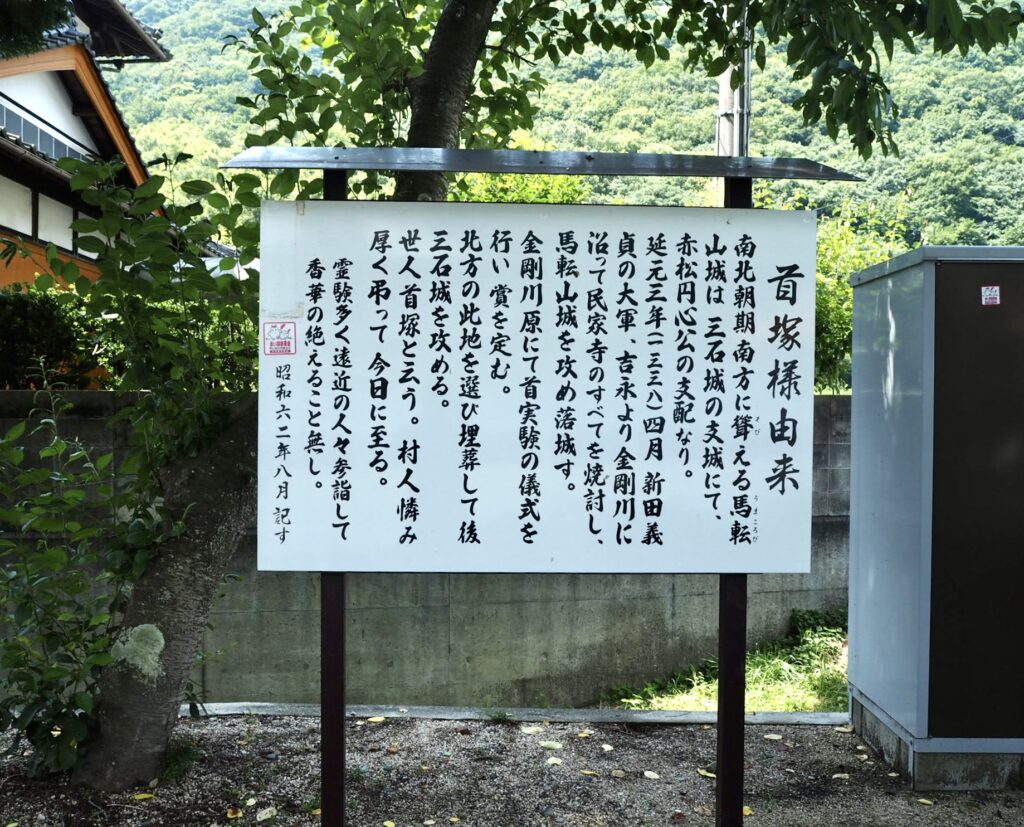 首塚様由来
南北朝期南方に聳える馬転
そび
うまころび
山城は 三石城の支城にて、
赤松円心公の支配なり。
延元三年(一三三八)四月 新田義
貞の大軍 吉永より金剛川に
沿って民家寺のすべてを焼討し、
馬転山城を攻め落城す。
金剛川原にて首実験の儀式を
行い賞を定む。
北方の此地を選び埋葬して後
三石城を攻める。
世人首塚と云う。村人憐み
厚く弔って今日に至る。
霊験多く遠近の人々参詣して
香華の絶えること無し。
昭和六二年八月 記す